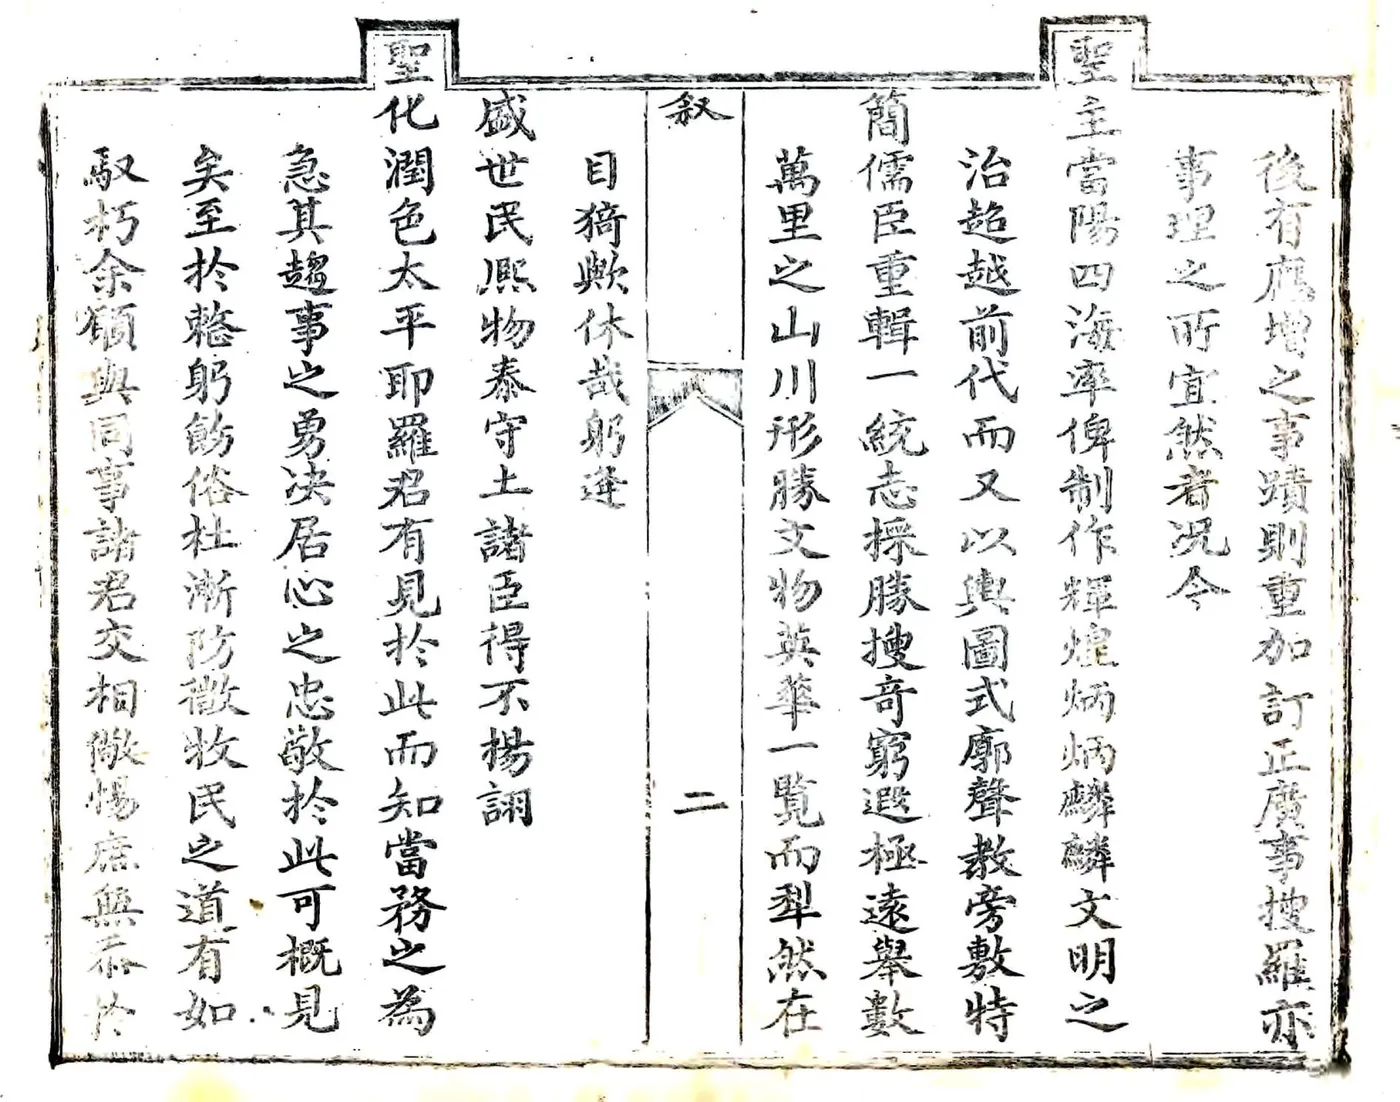 後有應增之事蹟則重加訂正廣事搜羅亦
事理之所宜然者况今
聖主當陽四海率俾制作輝煌炳炳麟麟文明之
治超越前代而又以輿圖式廓聲教旁敷特
簡儒臣重輯一統志採勝搜奇窮遐極遠舉數
萬里之山川形勝文物英華一覧而犁然在
叙
二
目猗歟休哉躬逢
盛世民熈物泰守土諸臣得不揚詡
聖化潤色太平耶羅君有見於此而知當務之為
急其趨事之勇决居心之忠敬於此可概見
矣至於整躬飭俗杜漸防微牧民之道有如
馭朽余願與同事諸君交相儆惕庶無忝於